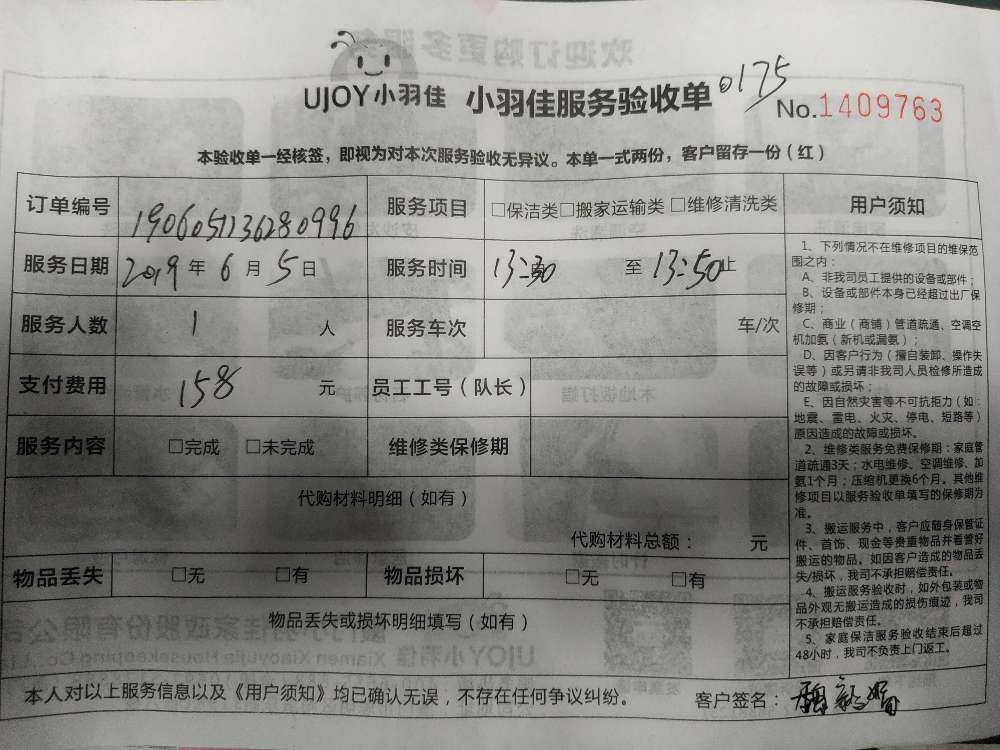 UJOY小羽佳 小羽佳服务验收单 0175
No.1409763
本验收单一经核签，即视为对本次服务验收无异议。本单一式两份，客户留存一份（红）
订单编号 190605136280996 服务项目 □保洁类□搬家运输类□维修清洗类
服务日期 2019 年 6 月 5 日 服务时间 13:30 至 13:50止
服务人数 1 人 服务车次 车/次
支付费用 158 元 员工工号（队长）
服务内容 □完成 □未完成 维修类保修期
代购材料明细（如有）
代购材料总额： 元
物品丢失 □无 □有 物品损坏 □无 □有
物品丢失或损坏明细填写（如有）
用户须知
1、下列情况不在维修项目的维保范
围之内：
A、非我司员工提供的设备或部件；
B、设备或部件本身已经超过出厂保
修期；
C、商业（商铺）管道疏通、空调空
机加氨（新机或漏氨）；
D、因客户行为（擅自装卸、操作失
误等）或另请非我司人员检修所造成
的故障或损坏；
E、因自然灾害等不可抗拒力（如：
地震、雷电、火灾、停电、短路等）
原因造成的故障或损坏。
2、维修类服务免费保修期：家庭管
道疏通3天；水电维修、空调维修、加
氨1个月；压缩机更换6个月。其他维
修项目以服务验收单填写的保修期为
准。
3、搬运服务中，客户应随身保管证
件、首饰、现金等贵重物品并看管好
搬运的物品。如因客户造成的物品丢
失/损坏，我司不承担赔偿责任。
4、搬运服务验收时，如外包装或物
品外观无搬运造成的损伤痕迹，我司
不承担赔偿责任。
5、家庭保洁服务验收结束后超过
48小时，我司不负责上门返工。
本人对以上服务信息以及《用户须知》均已确认无误，不存在任何争议纠纷。 客户签名：